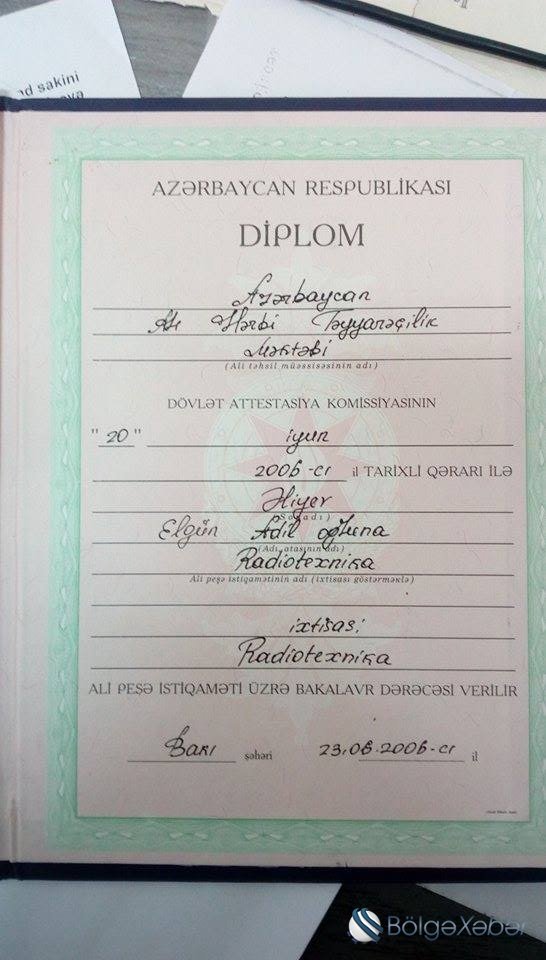 nd sakini
AZƏRBAYCAN RESPUBLİKASI
DİPLOM
Azərbaycan
Ali Hərbi Təyyarəçilik
Məktəbi
(Ali təhsil müəssisəsinin adı)
DÖVLƏT ATTESTASİYA KOMİSSİYASININ
"20" iyun
2006-cı il TARİXLİ QƏRARI İLƏ
Əliyev
(Soyadı)
Elgün Adil oğluna
(Adı, atasının adı)
Radiotexnika
Ali peşə istiqamətinin adı (ixtisası göstərməklə)
ixtisası:
Radiotexnika
ALİ PEŞƏ İSTİQAMƏTİ ÜZRƏ BAKALAVR DƏRƏCƏSİ VERİLİR
Bakı şəhəri 23.06.2006-cı il
BölgəXəbər